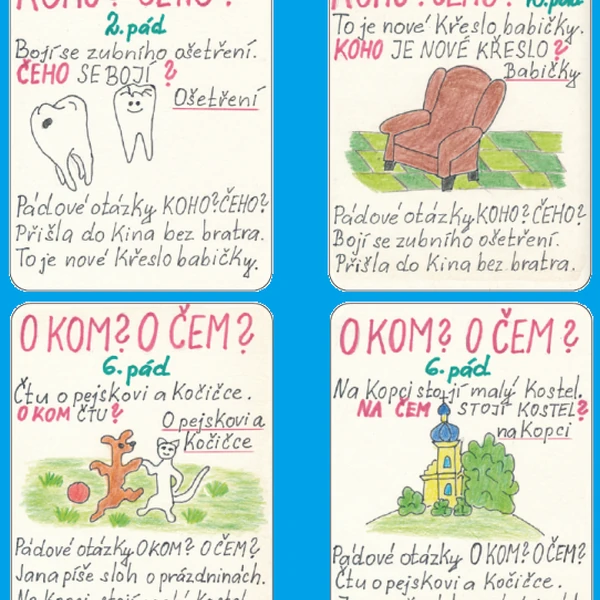 KOHO? ČEHO?
2. pád
Bojí se zubního ošetření.
ČEHO SE BOJÍ?
Ošetření
Pádové otázky KOHO? ČEHO?
Přišla do kina bez bratra.
To je nové křeslo babičky.
KOHO? ČEHO?
pád
To je nové křeslo babičky.
KOHO JE NOVÉ KŘESLO?
Babičky
Pádové otázky KOHO? ČEHO?
Bojí se zubního ošetření.
Přišla do kina bez bratra.
O KOM? O ČEM?
6. pád
Čtu o pejskovi a kočičce.
O KOM ČTU?
O pejskovi a
kočičce
Pádové otázky O KOM? O ČEM?
Jana píše sloh o prázdninách.
Na kopci stojí malý kostel.
O KOM? O ČEM?
6. pád
Na kopci stojí malý kostel.
NA ČEM STOJÍ KOSTEL?
na kopci
Pádové otázky O KOM? O ČEM?
Čtu o pejskovi a kočičce.